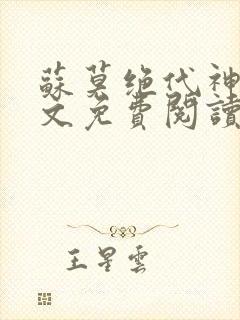 蘇莫绝代神
文免費閱讀
王星雲